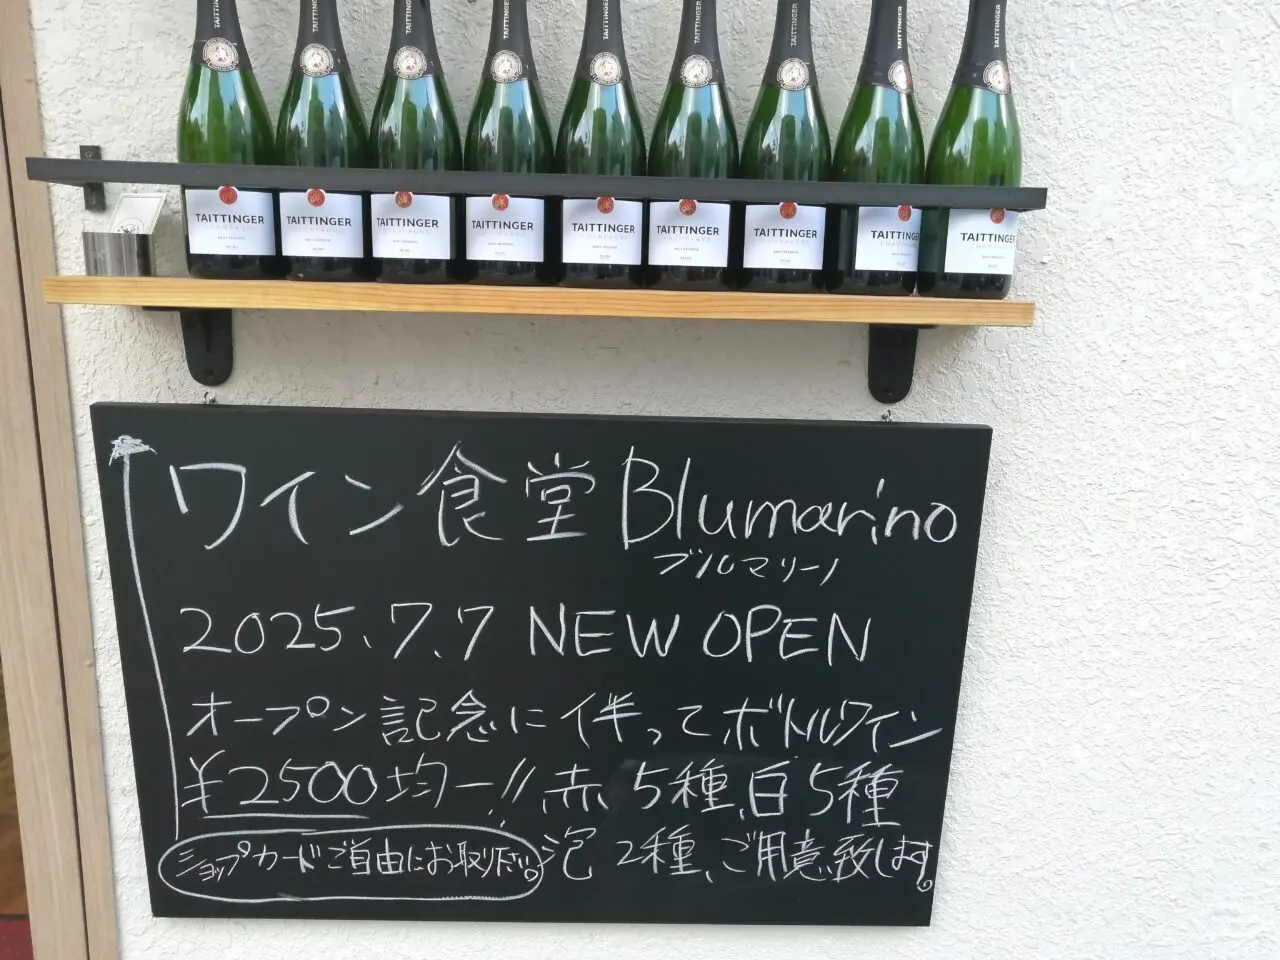 TAITTINGER TAITTINGER TAITTINGER TAITTINGER TAITTINGER TAITTINGER TAITTINGER TAITTINGER TAITTINGER
ワイン食堂 Blumarino
ブルマリーノ
2025.7.7 NEW OPEN
オープン記念に伴ってボトルワイン
¥2500均一!! 赤5種、白5種
ショップカードご自由にお取り下さい。
泡2種、ご用意致します。